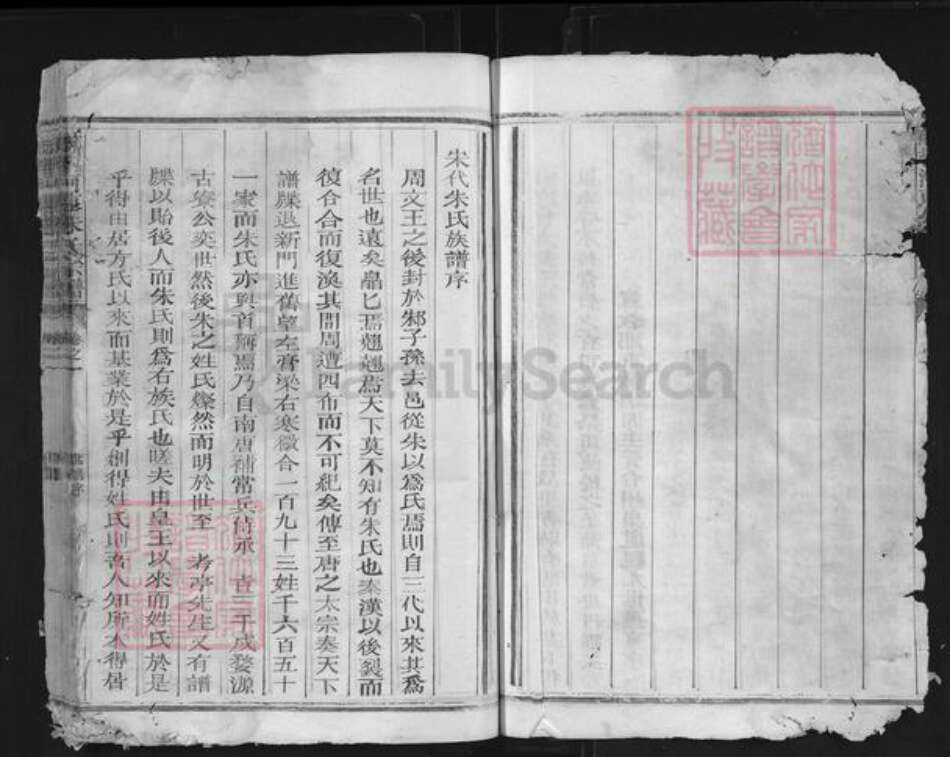 宋代朱氏族譜序
周文王之後封於邾子孫去邑從朱以爲氏焉則自三代以來其爲
名世也遠矣皛匕焉翹翹焉天下莫不知有朱氏也秦漢以後裂而
復合合而復渙其間周遭四布而不可紀矣傳至唐之太宗奏天下
譜牒退新門進舊望左膏梁右寒微合一百九十三姓千六百五十
一家而朱氏亦與首稱焉乃自南唐補常兵侍承 吉三千戍婺源
古寮公奕世然後朱之姓氏燦然而明於世至 考亭先生又有譜
牒以貽後人而朱氏則爲右族氏也嗟夫由皇王以來而姓氏於是
乎得由居方氏以來而基業於是乎創得姓氏則吾人知所本得居
FamilySearch